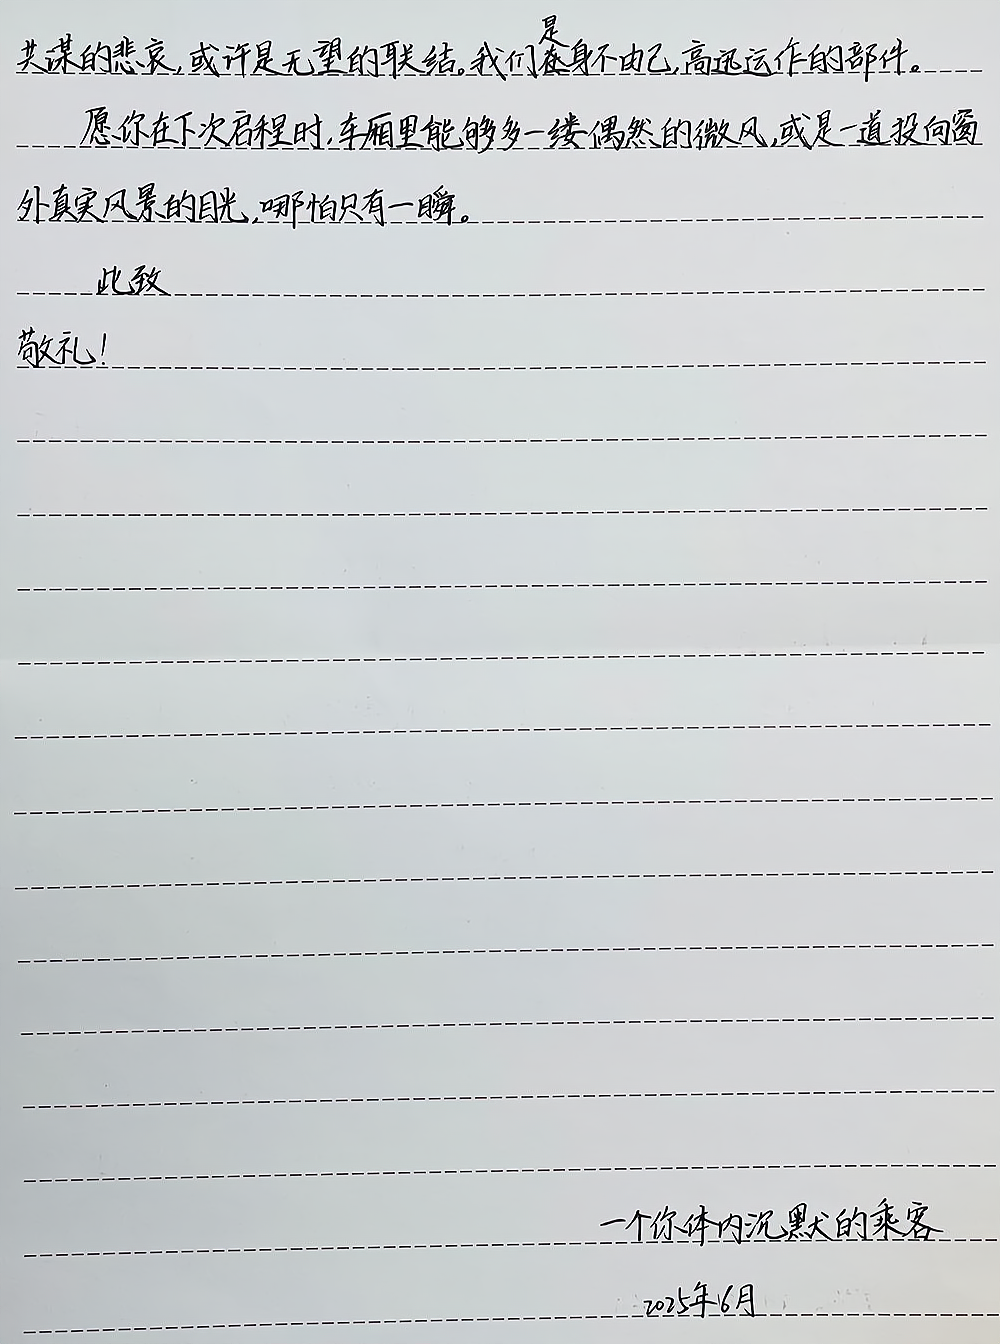 共谋的悲哀,或许是无望的联结。我们是身不由己,高迅运作的部件。
愿你在下次启程时,车厢里能够多一缕偶然的微风,或是一道投向窗
外真实风景的目光,哪怕只有一瞬。
此致
敬礼!
一个你体内沉默的乘客
2025年6月